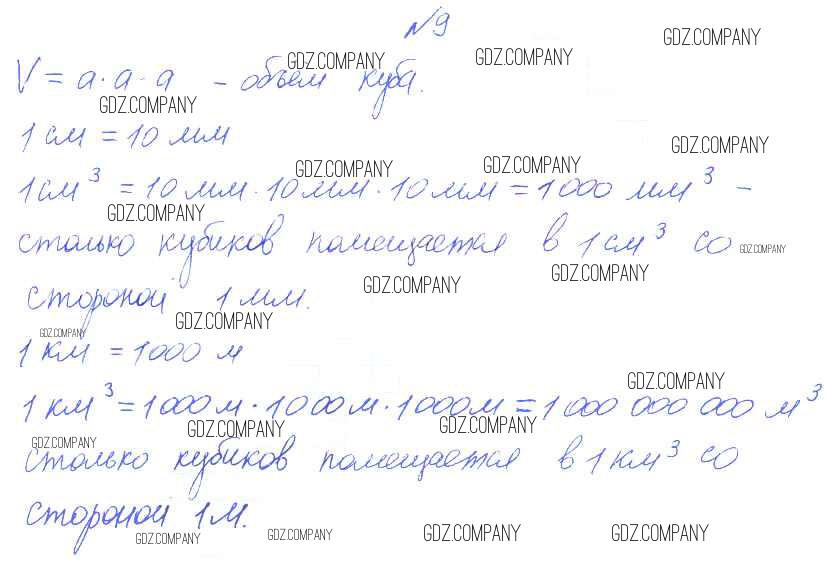 №9
GDZ.COMPANY
GDZ.COMPANY GDZ.COMPANY
V = a · a · a - объем куба.
GDZ.COMPANY
1 см = 10 мм
GDZ.COMPANY
GDZ.COMPANY GDZ.COMPANY
1 см³ = 10 мм · 10 мм · 10 мм = 1000 мм³ -
GDZ.COMPANY
столько кубиков помещается в 1 см³ со
GDZ.COMPANY
GDZ.COMPANY GDZ.COMPANY
стороной 1 мм.
GDZ.COMPANY
GDZ.COMPANY
1 км = 1000 м
GDZ.COMPANY
1 км³ = 1000 м · 1000 м · 1000 м = 1 000 000 000 м³
GDZ.COMPANY GDZ.COMPANY GDZ.COMPANY
столько кубиков помещается в 1 км³ со
стороной 1 м.
GDZ.COMPANY GDZ.COMPANY GDZ.COMPANY GDZ.COMPANY